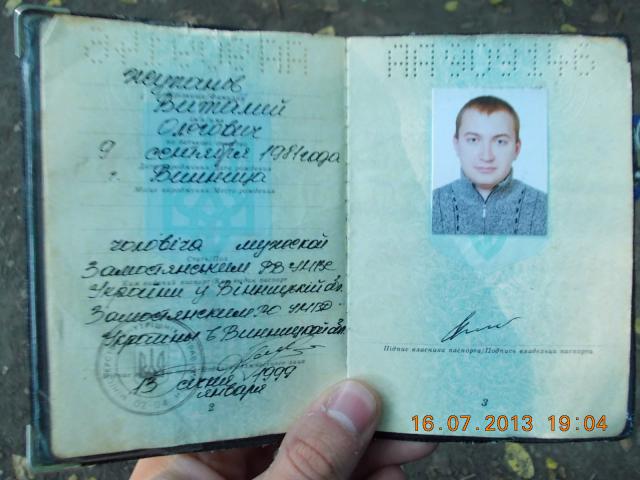 Жупанов
Виталий
Олегович
9 сентября 1981 года
г. Винница
Місце народження/Место рождения
чоловіча мужской
Стать/Пол
Замостянським РВ УМВС
України у Вінницькій обл.
Замостянским РО УМВД
Украины в Винницкой обл.
13 січня 1999
января
2
АА909146
Підпис власника паспорта/Подпись владельца паспорта
3
16.07.2013 19:04